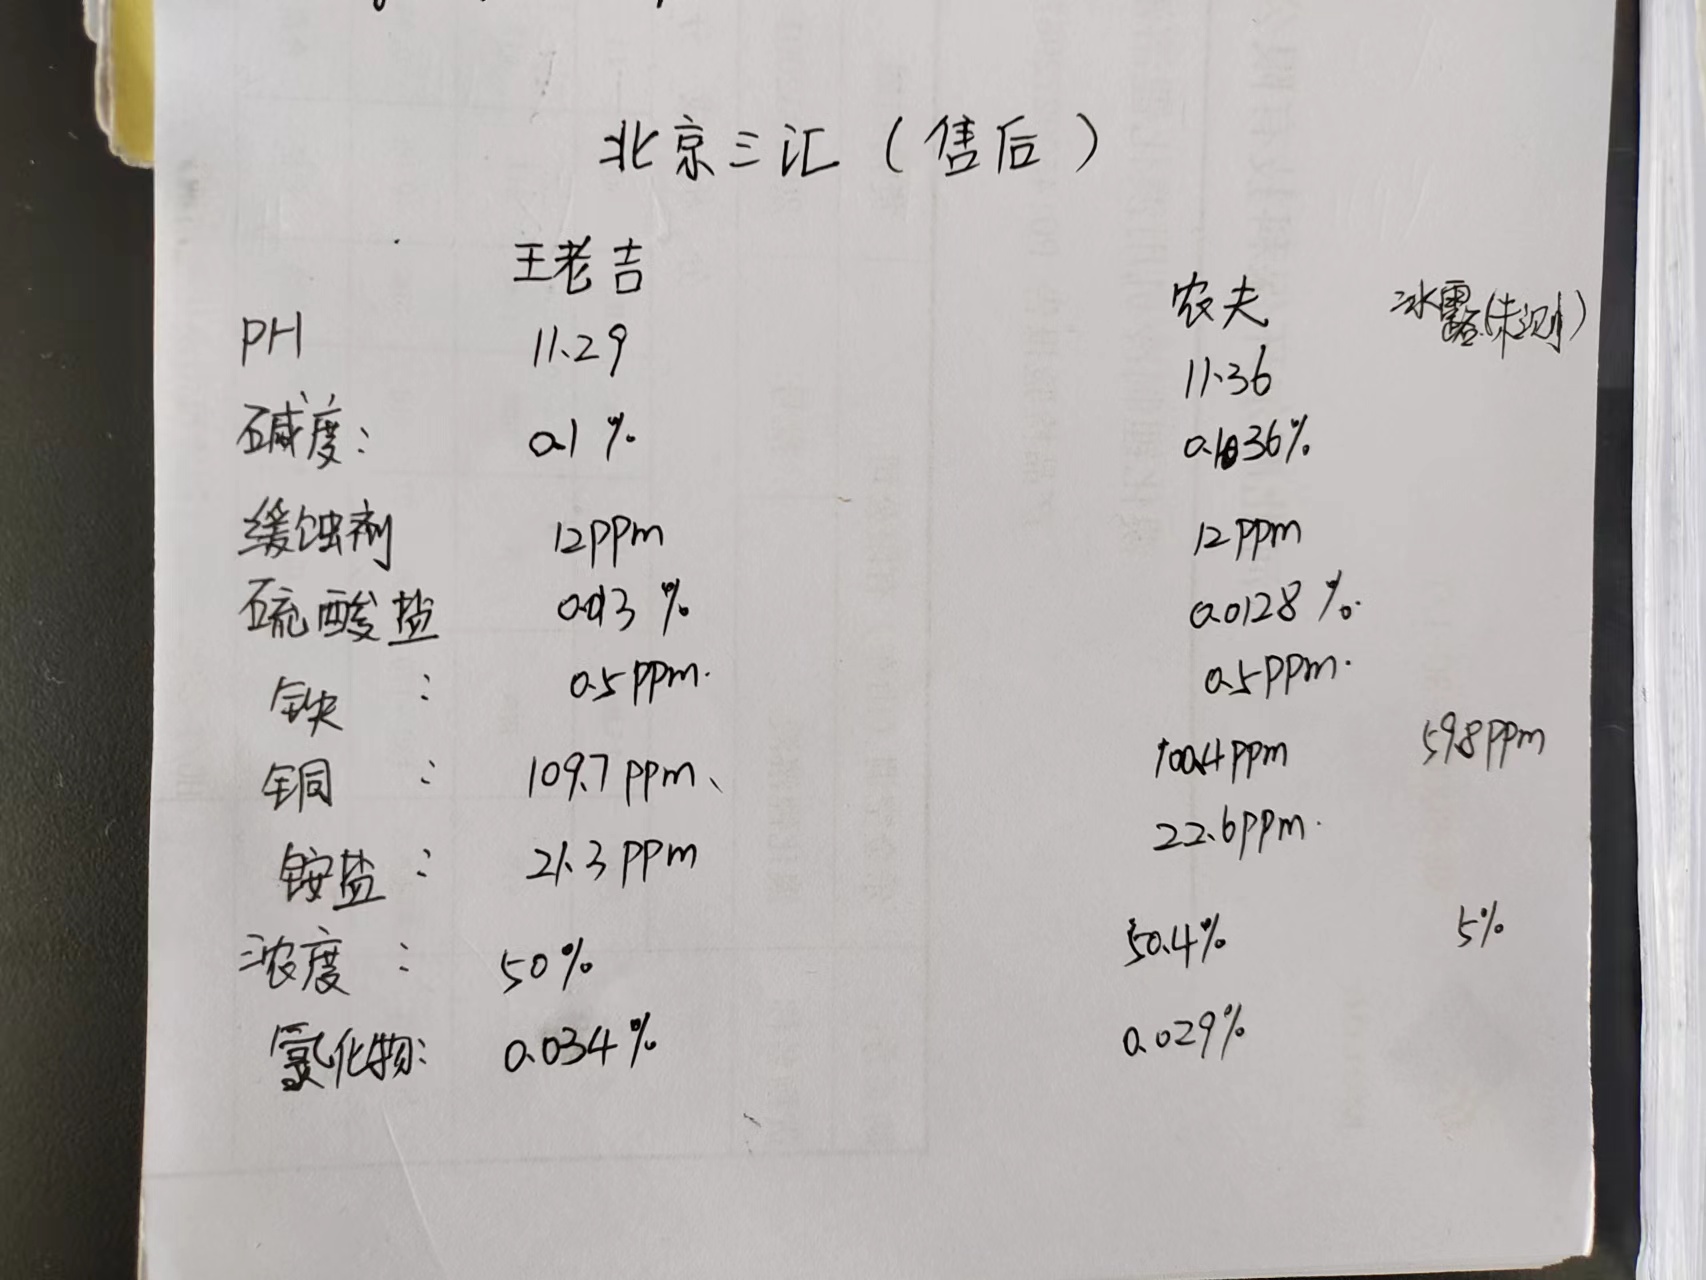 北京三汇(售后)
王老吉 农夫 冰露(未测)
PH 11.29 11.36
碱度: 0.1% 0.1036%
缓蚀剂 12ppm 12ppm
硫酸盐 0.013% 0.0128%.
铁: 0.5ppm. 0.5ppm.
铜: 109.7ppm、 100.4ppm 59.8ppm
铵盐: 21.3ppm 22.6ppm.
浓度: 50% 50.4% 5%
氯化物: 0.034% 0.029%